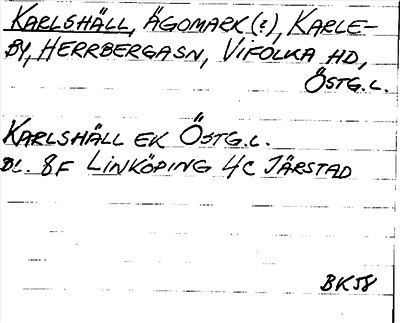 KARLSHÄLL, ÄGOMARK (?), KARLE-
BY, HERRBERGASN, VIFOLKA HD,
ÖSTG.L.
KARLSHÄLL EK ÖSTG.L.
BL. 8F LINKÖPING 4C JÄRSTAD
BK58